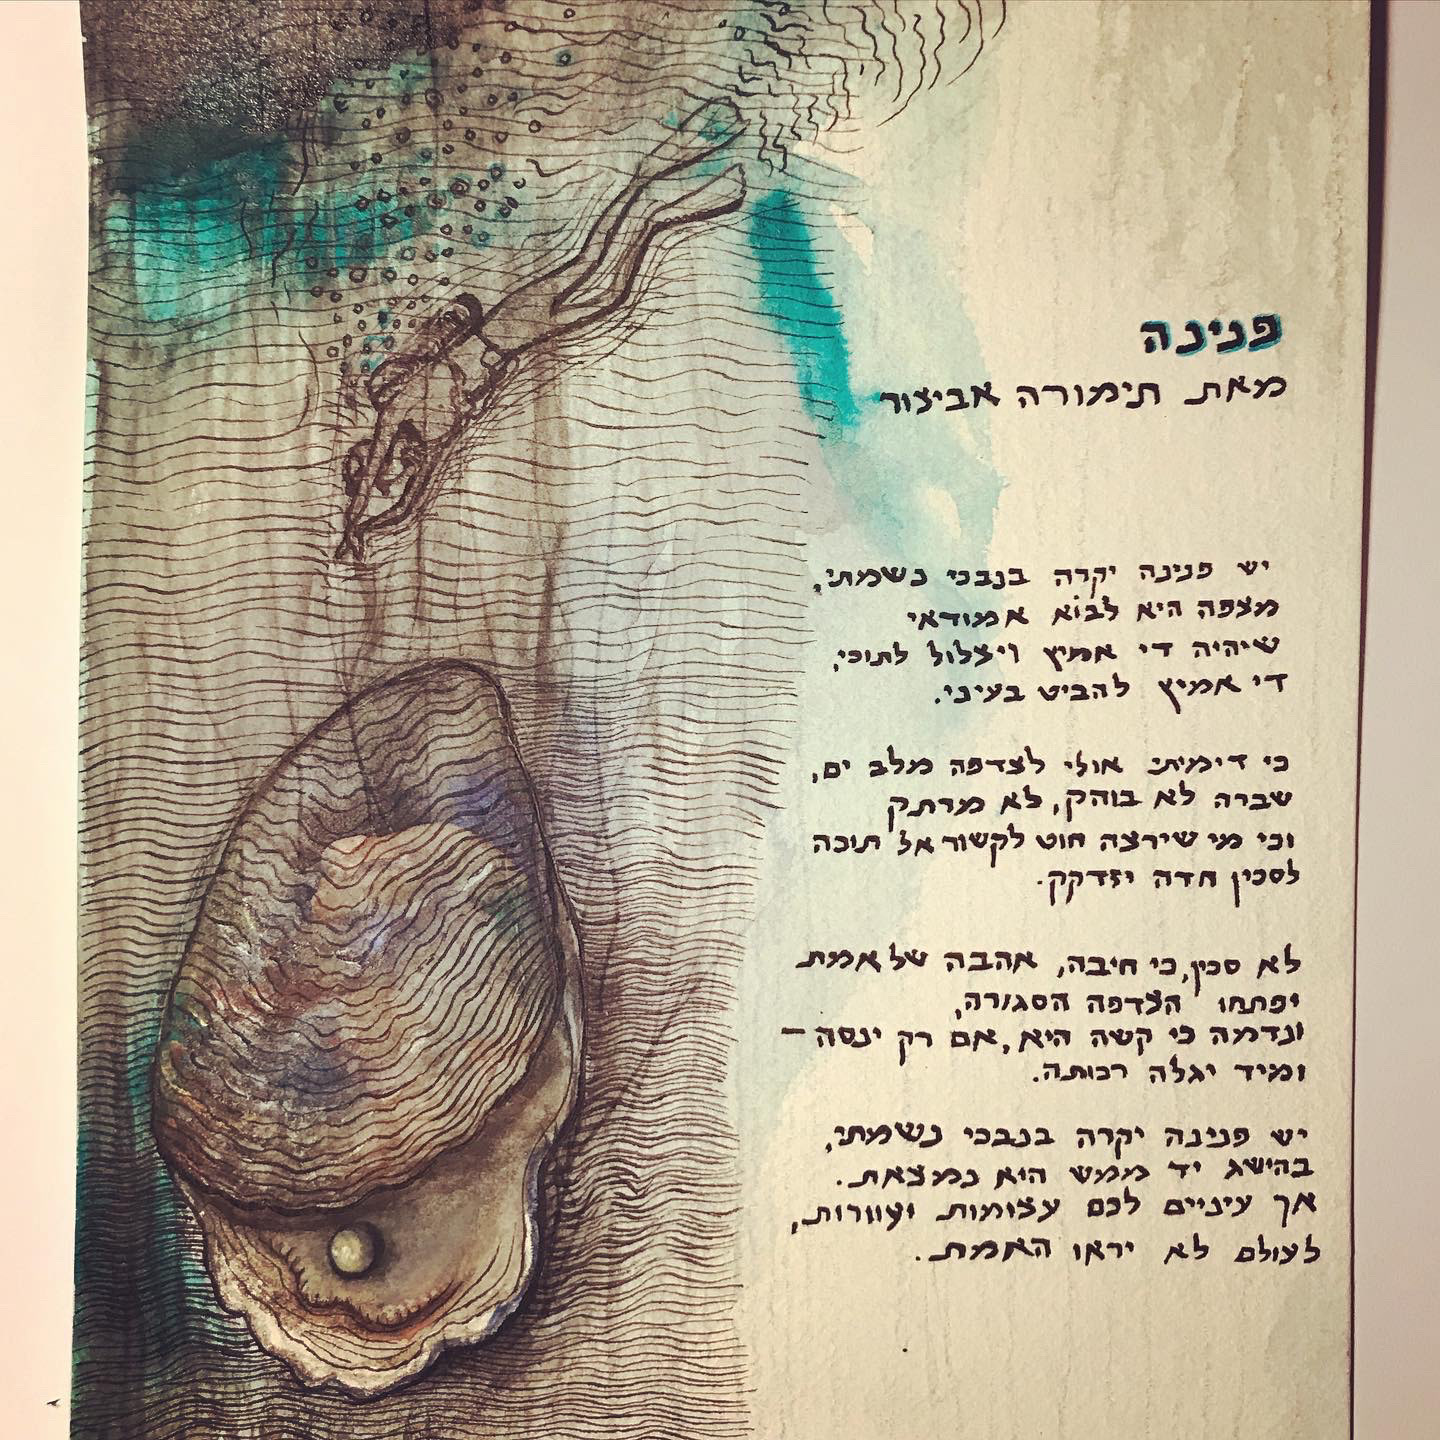 פנינה
מאת תימורה אביצור
יש פנינה יקרה בנבכי נשמתי,
מצפה היא לבוא אמודאי
שיהיה די אמיץ ויצלול לתוכי,
די אמיץ להביט בעיני.
כי דימיתי אולי לצדפה מלב ים,
שברה לא בוהק, לא מרתק
וכי מי שירצה חוט לקשור אל תוכה
לסכין חדה יזדקק.
לא סכין, כי חיבה, אהבה של אמת
יפתחו הצדפה הסגורה,
ונדמה כי קשה היא, אם רק ינסה –
ומיד יגלה רכותה.
יש פנינה יקרה בנבכי נשמתי,
בהישג יד ממש היא נמצאת.
אך עיניים לכם עצומות ועוורות,
לעולם לא יראו האמת.